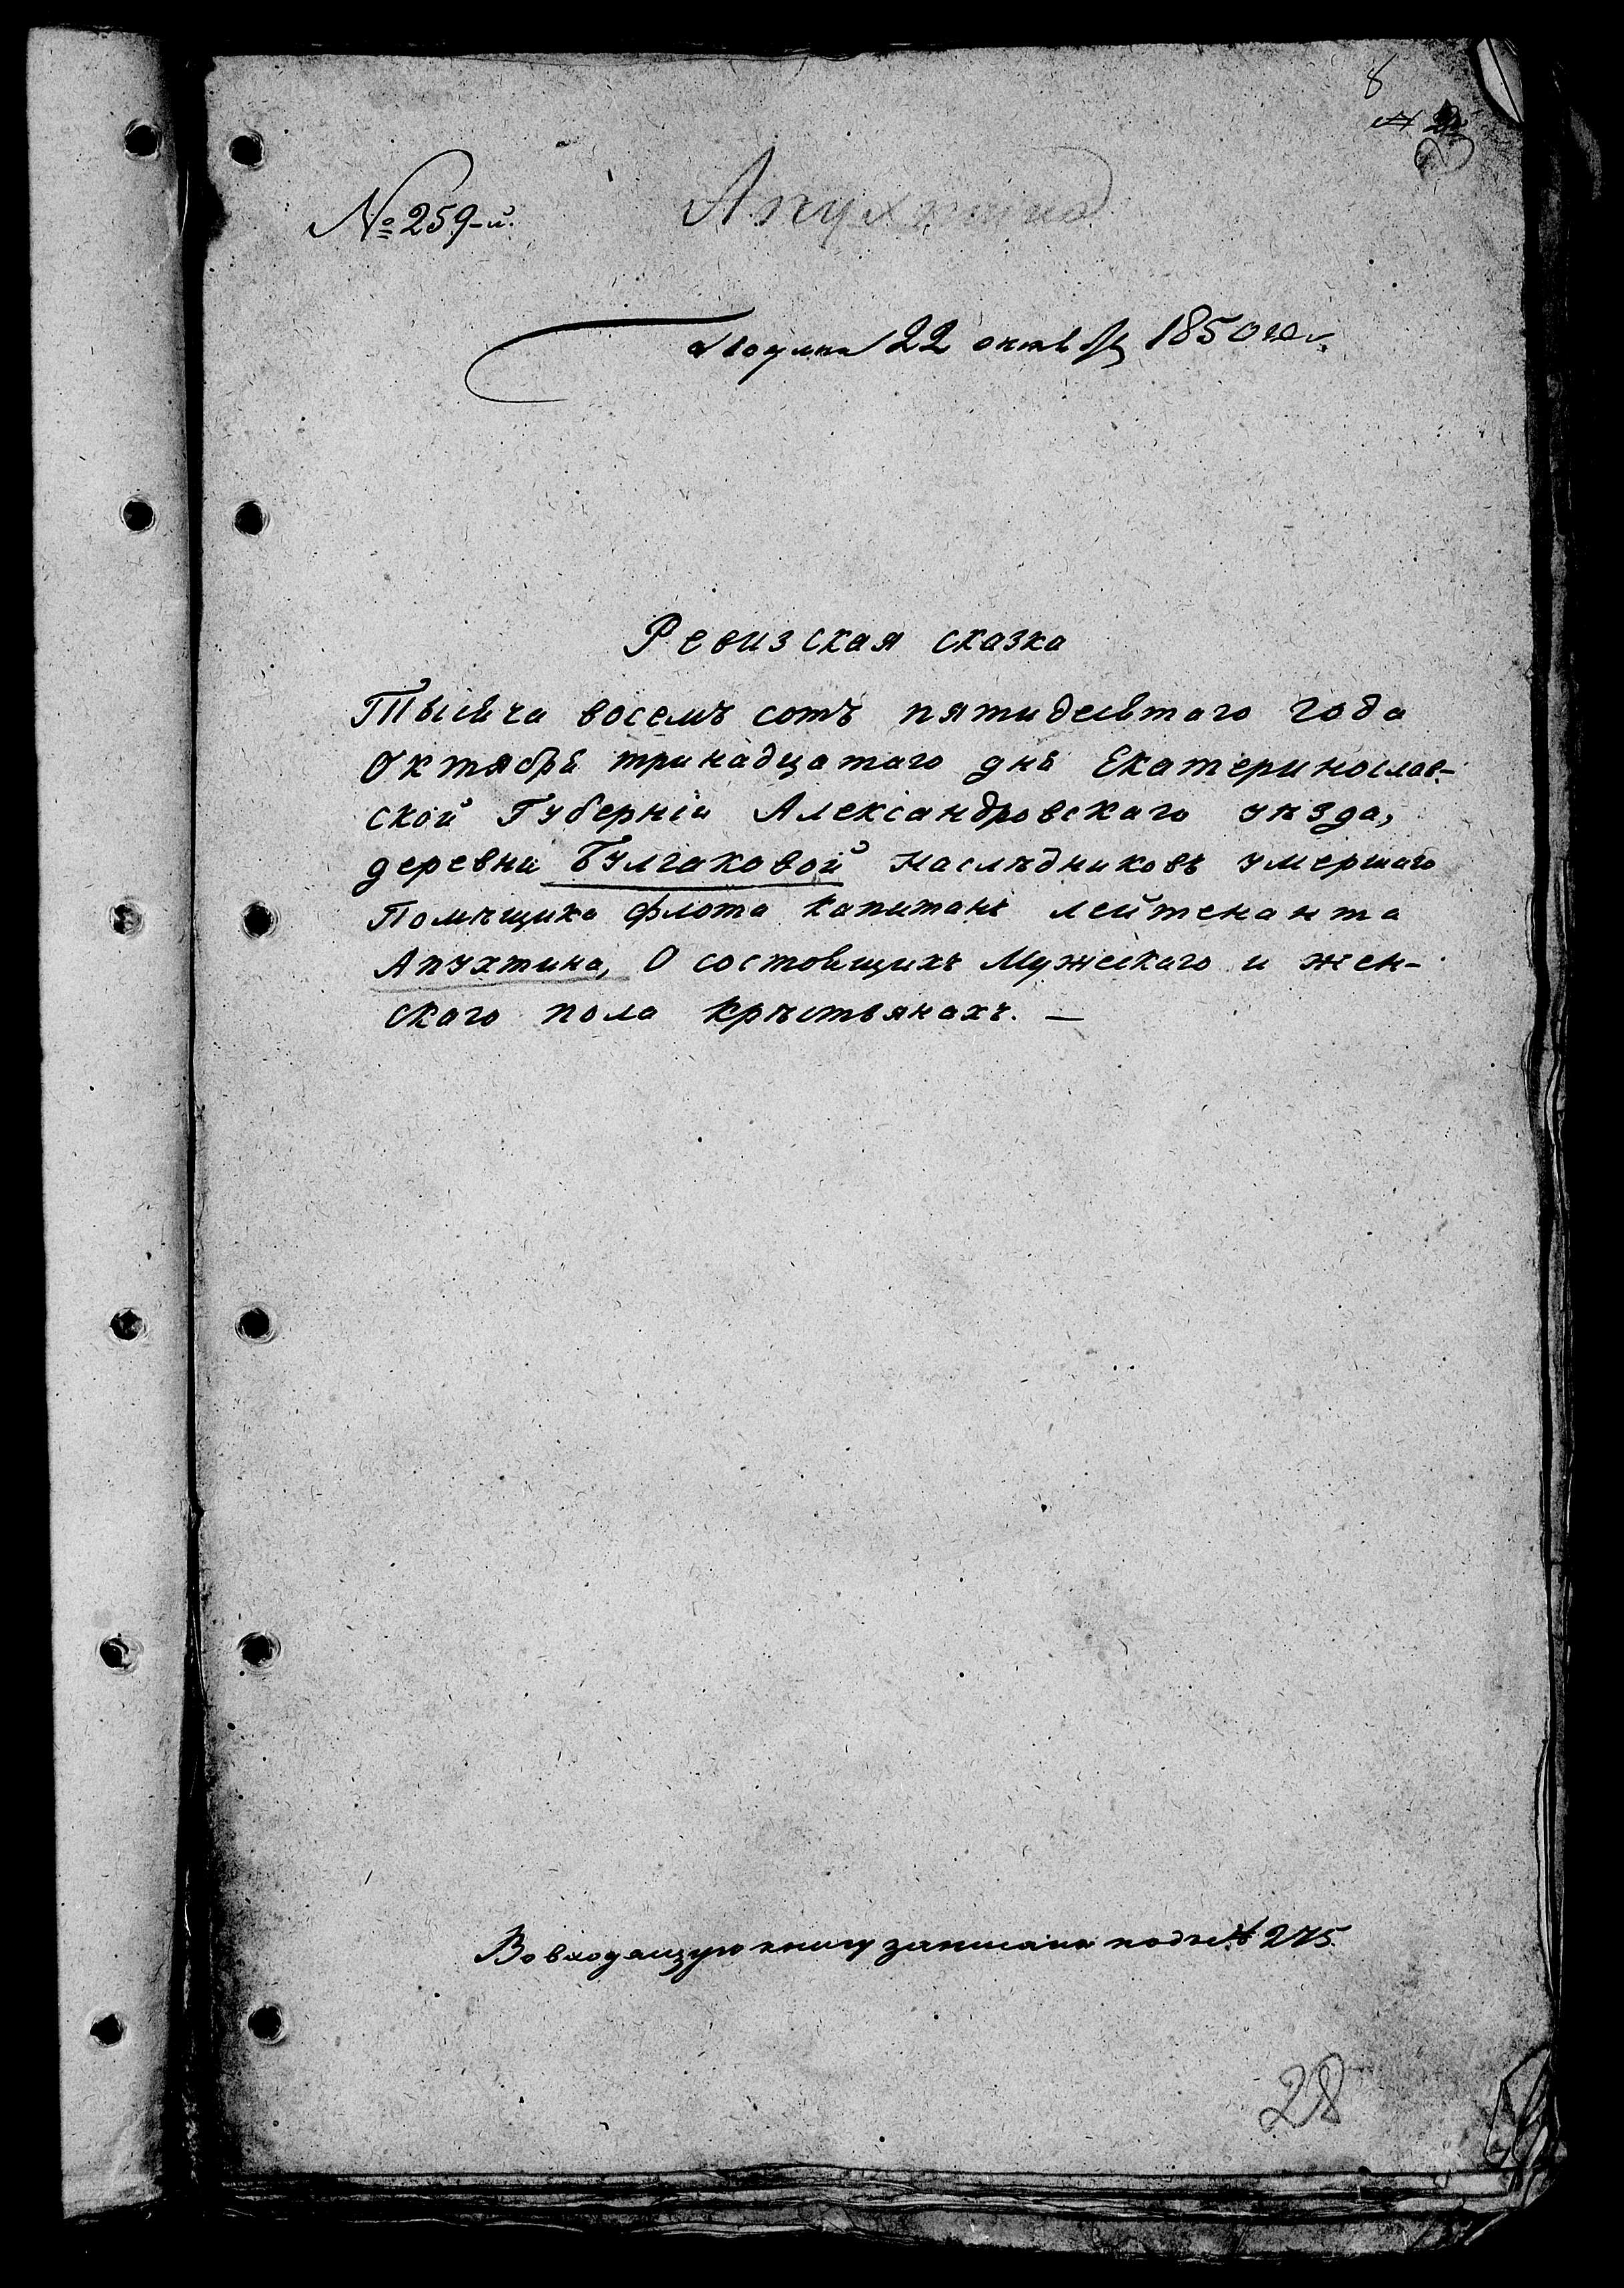 8
№ 259-й.
Апухтина
Получена 22 октября 1850 го г.
Ревизская сказка
Тысяча восемъ сотъ пятидесятаго года
Октября тринадцатаго дня Екатеринослав-
ской Губерніи Александровскаго уѣзда,
деревни Булгаковой наслѣдниковъ умершаго
Помѣщика флота капитанъ лейтенанта
Апухтина, О состоящихъ Мужескаго и жен-
скаго пола крѣстьянахъ. —
Во входящую книгу записана подъ № 275.
28